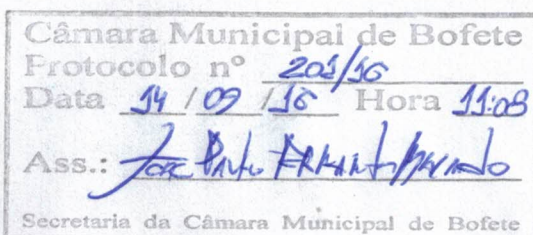 Câmara Municipal de Bofete
Protocolo nº 201/16
Data 14 / 09 / 16 Hora 11:08
Ass.:
Secretaria da Câmara Municipal de Bofete